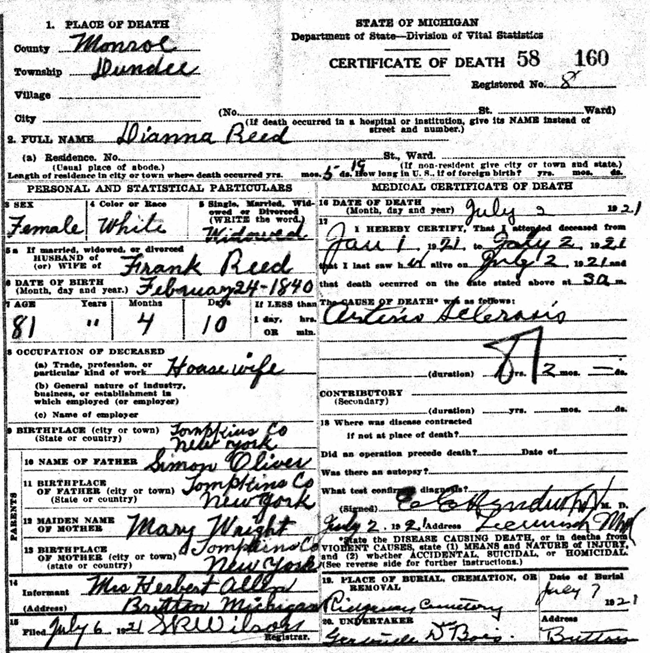 1. PLACE OF DEATH
County Monroe
Township Dundee
Village
City
STATE OF MICHIGAN
Department of State—Division of Vital Statistics
CERTIFICATE OF DEATH 58 160
Registered No. 8
(No. St. Ward)
(If death occurred in a hospital or institution, give its NAME instead of street and number.)
2. FULL NAME Dianna Reed
(a) Residence. No. St., Ward.
(Usual place of abode.) (If non-resident give city or town and state.)
Length of residence in city or town where death occurred yrs. mos. 5 ds. 19 How long in U. S., if of foreign birth? yrs. mos. ds.
PERSONAL AND STATISTICAL PARTICULARS
3 SEX
Female
4 Color or Race
White
5 Single, Married, Widowed or Divorced
(WRITE the word.)
Widowed
5a If married, widowed, or divorced
HUSBAND of
(or) WIFE of Frank Reed
6 DATE OF BIRTH
(Month, day, and year.) February 24-1840
7 AGE Years Months Days If LESS than
81 " 4 10 1 day, hrs.
OR min.
8 OCCUPATION OF DECEASED
(a) Trade, profession, or
particular kind of work House wife
(b) General nature of industry,
business, or establishment in
which employed (or employer)
(c) Name of employer
9 BIRTHPLACE (city or town) Tompkins Co
(State or country) New York
PARENTS
10 NAME OF FATHER Simon Oliver
11 BIRTHPLACE
OF FATHER (city or town) Tompkins Co
(State or country) New York
12 MAIDEN NAME
OF MOTHER Mary Wright
13 BIRTHPLACE
OF MOTHER (city or town) Tompkins Co
(state or country) New York
14
Informant Mrs Herbert Allen
(Address) Britton Michigan
15
Filed July 6 1921 S R Wilson
Registrar.
MEDICAL CERTIFICATE OF DEATH
16 DATE OF DEATH
(Month, day and year) July 2 1921
17
I HEREBY CERTIFY, That I attended deceased from
Jan 1 1921, to July 2, 1921
that I last saw h alive on July 2 1921 and
that death occurred on the date stated above at 3 a m.
The CAUSE OF DEATH* was as follows:
Arterio Sclerosis
(duration) yrs. 2 mos. — ds.
CONTRIBUTORY
(Secondary)
(duration) yrs. mos. ds.
18 Where was disease contracted
if not at place of death?
Did an operation precede death? Date of
Was there an autopsy?
What test confirmed diagnosis?
(Signed) M. D.
July 2 1921 Address
*State the DISEASE CAUSING DEATH, or in deaths from
VIOLENT CAUSES, state (1) MEANS and NATURE of INJURY,
and (2) whether ACCIDENTAL SUICIDAL, or HOMICIDAL.
(See reverse side for further instructions.)
19. PLACE OF BURIAL, CREMATION, OR
REMOVAL
Ridgeway Cemetery
Date of Burial
July 7 1921
20. UNDERTAKER
Gertrude D Bois.
Address
Britton